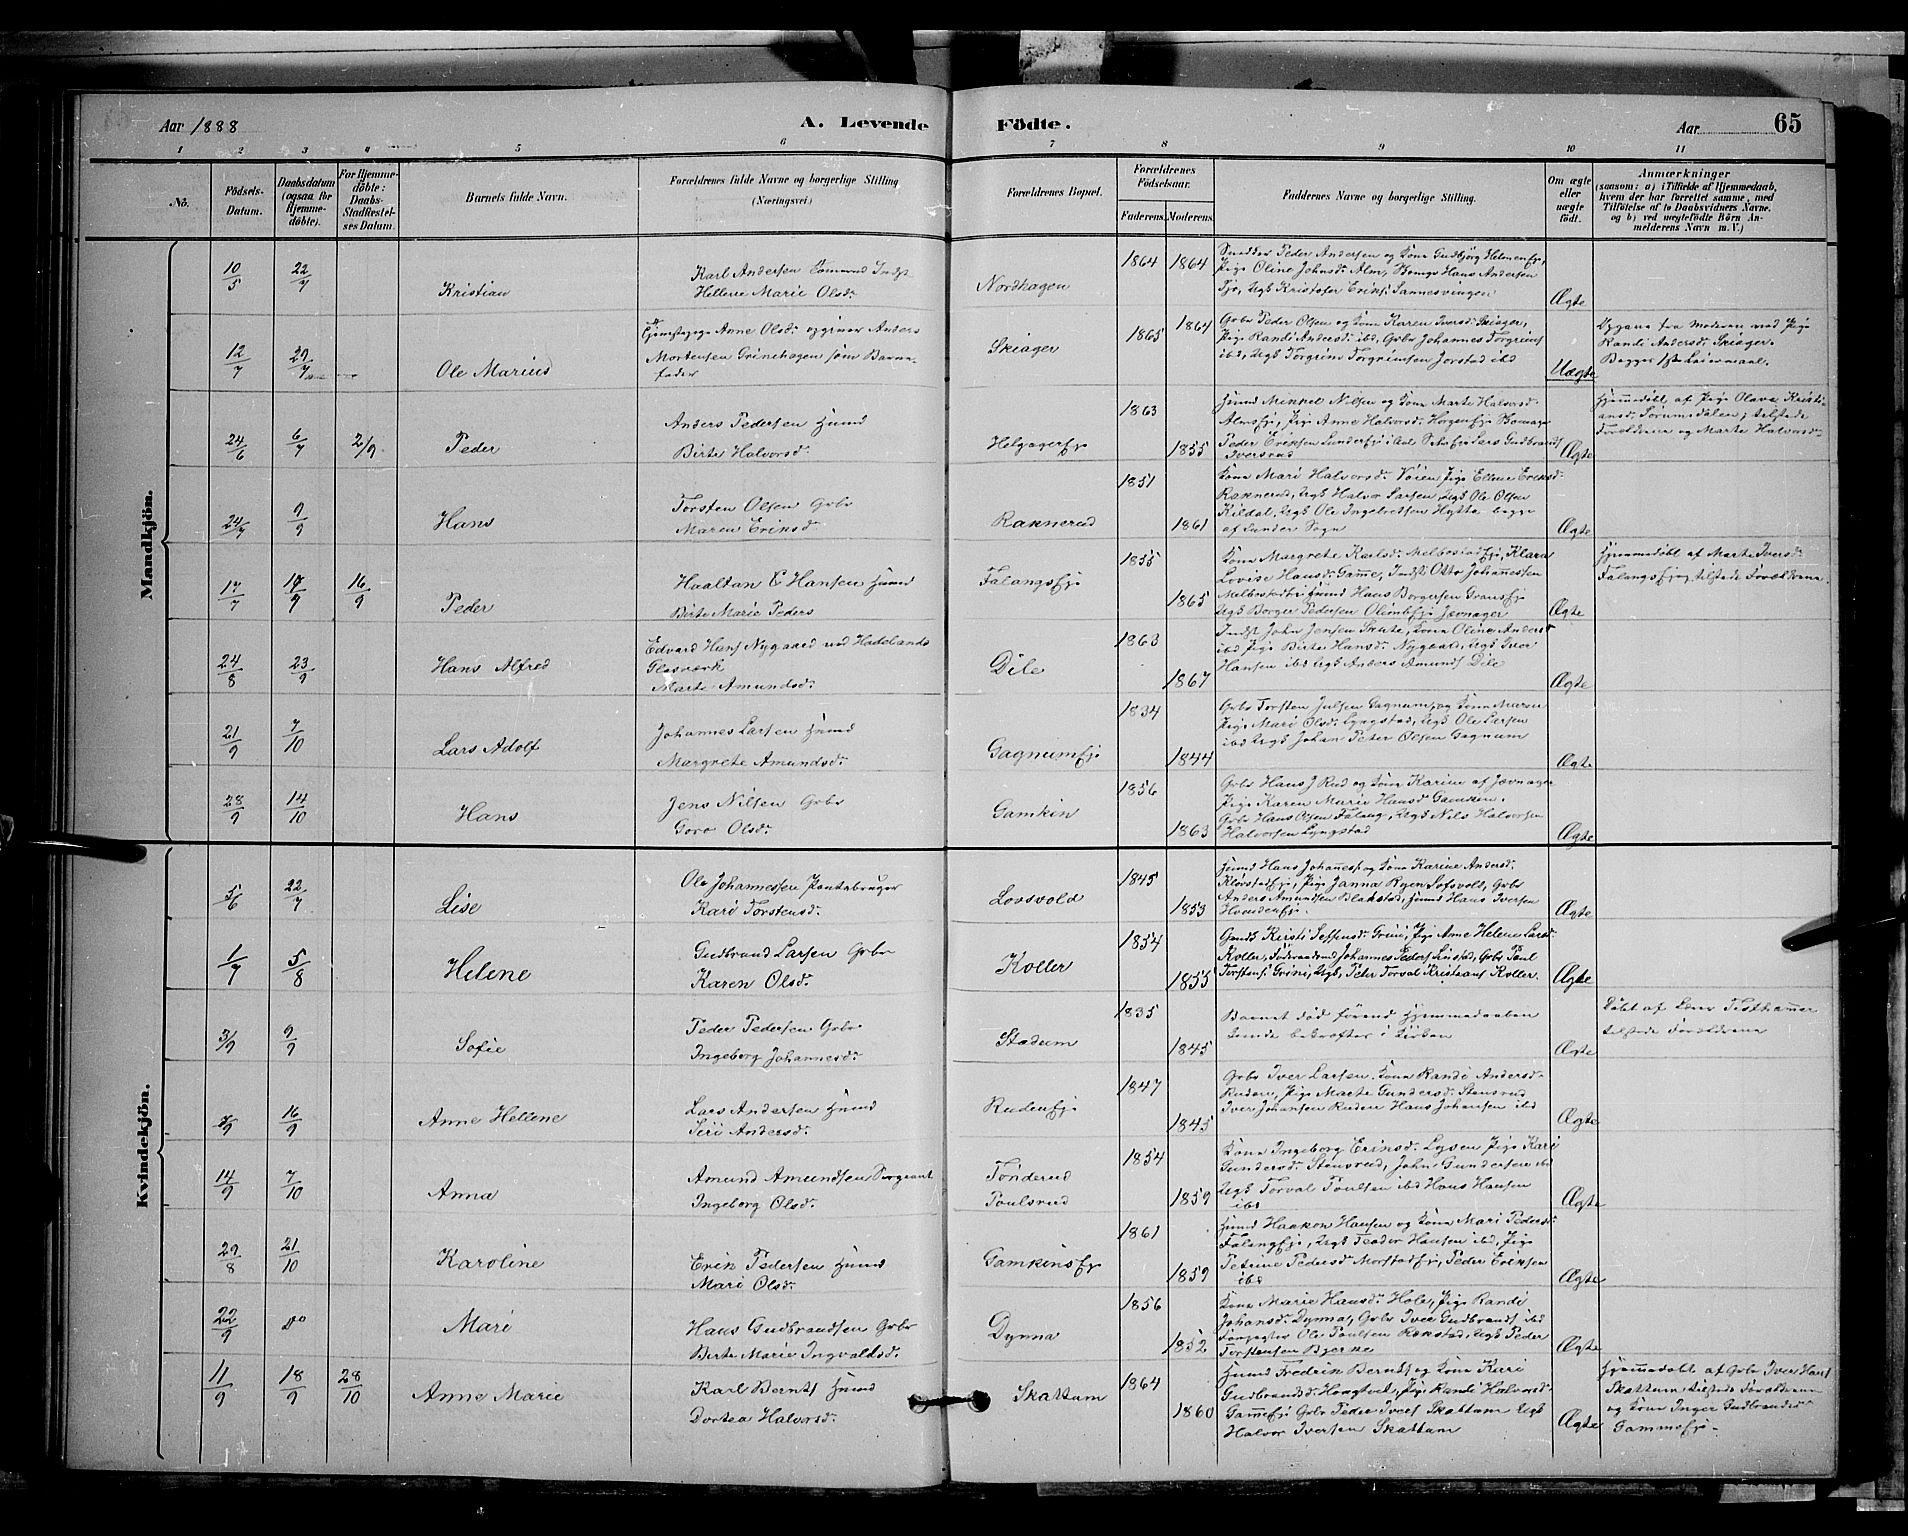 Aar 1888
A. Levende Födte.
Aar
65
1 2 3 4 5 6 7 8 9 10 11
No.
Födsels-Datum.
Daabsdatum (ogsaa for Hjemme-döbte).
For Hjemme-döbte: Daabs-Stadfæstel-ses Datum.
Barnets fulde Navn.
Forældrenes fulde Navne og borgerlige Stilling (Næringsvei.)
Forældrenes Bopæl.
Forældrenes Födselsaar.
Faderens. Moderens.
Faddernes Navne og borgerlige Stilling.
Om ægte eller uægte födt.
Anmærkninger
(saasom: a) i Tilfælde af Hjemmedaab, hvem der har forrettet samme, med Tilföielse af to Daabsvidners Navne, og b) ved uægtefödte Börn Anmelderens Navn m. V.)
Mandkjön.
10/5 22/7 Kristian
Karl Andersen Indst
Hellene Marie Olsd.
Nordhagen
1864 1864
Snedker Peder Andersen og Kone Gudbjørg
Pige Oline Johnsd. Alm, Hans Andersen
Ungk Kristofer Eriks. Sannesvingen
Ægte
12/7 29/7 Ole Marius
Anne Olsd. opgiver Anders
Mortensen Grinehagen som Barne-
fader
Skiager
1865 1864
Grbr Peder Olsen og Kone Karen Iversd. Skiager,
Pige Randi Andersd. ibd, Grbr Johannes Torgrims
ibd, Ungk Torgrim Torgrimsen Jorstad ibd
Uægte
Opgave fra Moderen ved Pige
Randi Andersd. Skiager.
Begges 1ste Leiermaal.
24/6 6/7 2/9 Peder
Anders Pedersen Husmd
Birte Halvorsd.
Helgagerej.
1863 1855
Husmd Mikkel Nilsen og Kone Marte Halvorsd.
Almsej. Pige Anne Halvorsd.
Peder Eriksen Gudbrand
Iversrud
Ægte
Hjemmedøbt af Pige Olava Kristi-
ansd. Sørumsdalen, tilstede
Forældrene og Marte Halvorsd.
24/7 9/9 Hans
Torsten Olsen Grbr
Maren Eriksd.
Raknerud
1851 1861
Kone Mari Halvorsd. Vøien Pige Ellene Eriksd.
Raknerud, Ungk Halvor Larsen, Ungk Ole Olsen
Kildal, Ungk Ole Ingebretsen Hytta begge
af Lunder Sogn
Ægte
17/7 17/7 16/9 Peder
Haaltan C Hansen Husmd
Birte Marie Peders
Falangsej.
1855 1865
Kone Margrete Karlsd. Melbostadej, Klara
Lovise Hansd. Gamme, Indst Otto Johannessen
Melbostadej Husmd Hans Borgersen Gransej.
Ungk Borger Pedersen Jævnager
Ægte
Hjemmedøbt af Marte Iversd.
Falangsej, tilstede Forældrene.
24/8 23/9 Hans Alfred
Edvard Hans Nygaard ved Hadelands
Glasværk
Marte Amundsd.
Dile
1863 1867
Indst John Jensen Skute, Kone Oline Andersd
ibd Pige Birte Hansd. Nygaard, Ungk Iver
Hansen ibd Ungk Anders Amunds Dile
Ægte
21/9 7/10 Lars Adolf
Johannes Larsen Husmd
Margrete Amundsd.
Gagnumsej.
1834 1844
Grbr Torsten Julsen Gagnum, og Kone Maren
Pige Mari Olsd. Lyngstad, Ungk Ole Larsen
ibd Ungk Johan Peter Olsen Gagnum
Ægte
28/9 14/10 Hans
Jens Nilsen Grbr
Goro Olsd.
Gamkin
1856 1863
Grbr Hans J Rud og Kone Karine af Jævnager
Pige Karen Marie Hansd Gamkin.
Grbr Hans Olsen Falang, Ungk Nils Halvorsen
Halvorsen Lyngstad
Ægte
Kvindekjön.
5/6 22/7 Lise
Ole Johannessen Pantebruger
Kari Torstensd.
Lovsvold
1845 1853
Husmd Hans Johannes og Kone Karine Andersd.
Pige Janna Ryen Lofsvold, Grbr
Anders Amundsen Blakstad, Husmd Hans Iversen
Ægte
1/7 5/8 Helene
Gudbrand Larsen Grbr
Karen Olsd.
Koller
1854 1855
Kirsti Grini, Pige Anne Helene Larsd.
Koller, Føderaadsmd Johannes Peders Grbr Paul
Torstens Grini, Ungk. Peter Torval Kristians Koller.
Ægte
3/9 9/9 Sofie
Peder Pedersen Grbr
Ingeborg Johannesd.
Stadum
1835 1845
Barnet død førend Hjemmedaaben
kunde bekræftes i Kirken
Ægte
Døbt af Lærer Tisthammer
tilstede Forældrene
7/9 16/9 Anne Hellene
Lars Andersen Husmd
Siri Andersd.
Rudenej.
1847 1845
Grbr Iver Larsen Kone Randi Andersd.
Ruden, Pige Marte Gundersd. Stensrud
Iver Johansen Ruden Hans Johansen ibd
Ægte
14/9 7/10 Anna
Amund Amundsen Sergeant
Ingeborg Olsd.
Tønderud
Poulsrud
1854 1859
Kone Ingeborg Eriksd. Lysen Pige Kari
Gundersd. Stensrud, John Gundersen ibd
Ungk Torval Poulsen ibd Hans Hansen
ibd
Ægte
29/8 21/10 Karoline
Erik Pedersen Husmd
Mari Olsd.
Gamkinsej.
1861 1859
Husmd Haakon Hansen og Kone Mari Pedersd.
Falangej, Ungk Hansen ibd, Pige
Petrine Pedersd Morstadej, Peder Eriksen
ibd
Ægte
22/9 do Mari
Hans Gudbrandsen Grbr
Birte Marie Ingvaldsd.
Dynna
1856 1852
Kone Marie Hansd. Hole, Pige Randi
Johansd. Dynna, Grbr Iver Gudbrands ibd
Ole Poulsen Rækstad, Ungk Peder
Torstensen Bjerke
Ægte
11/9 18/9 28/10 Anne Marie
Karl Bernts Husmd
Dortea Halvorsd.
Skattum
1864 1860
Husmd Fredrik Bernts og Kone Kari
Gudbrandsd. Hougtvet, Pige Randi Halvorsd.
Gammej Grbr Peder Ivers Skattum Ungk
Halvor Iversen Skattum
Ægte
Hjemmedøbt af Grbr Iver Hans
Skattum tilstede Forældrene
og Kone Inger Gudbrandsd.
Gammej.